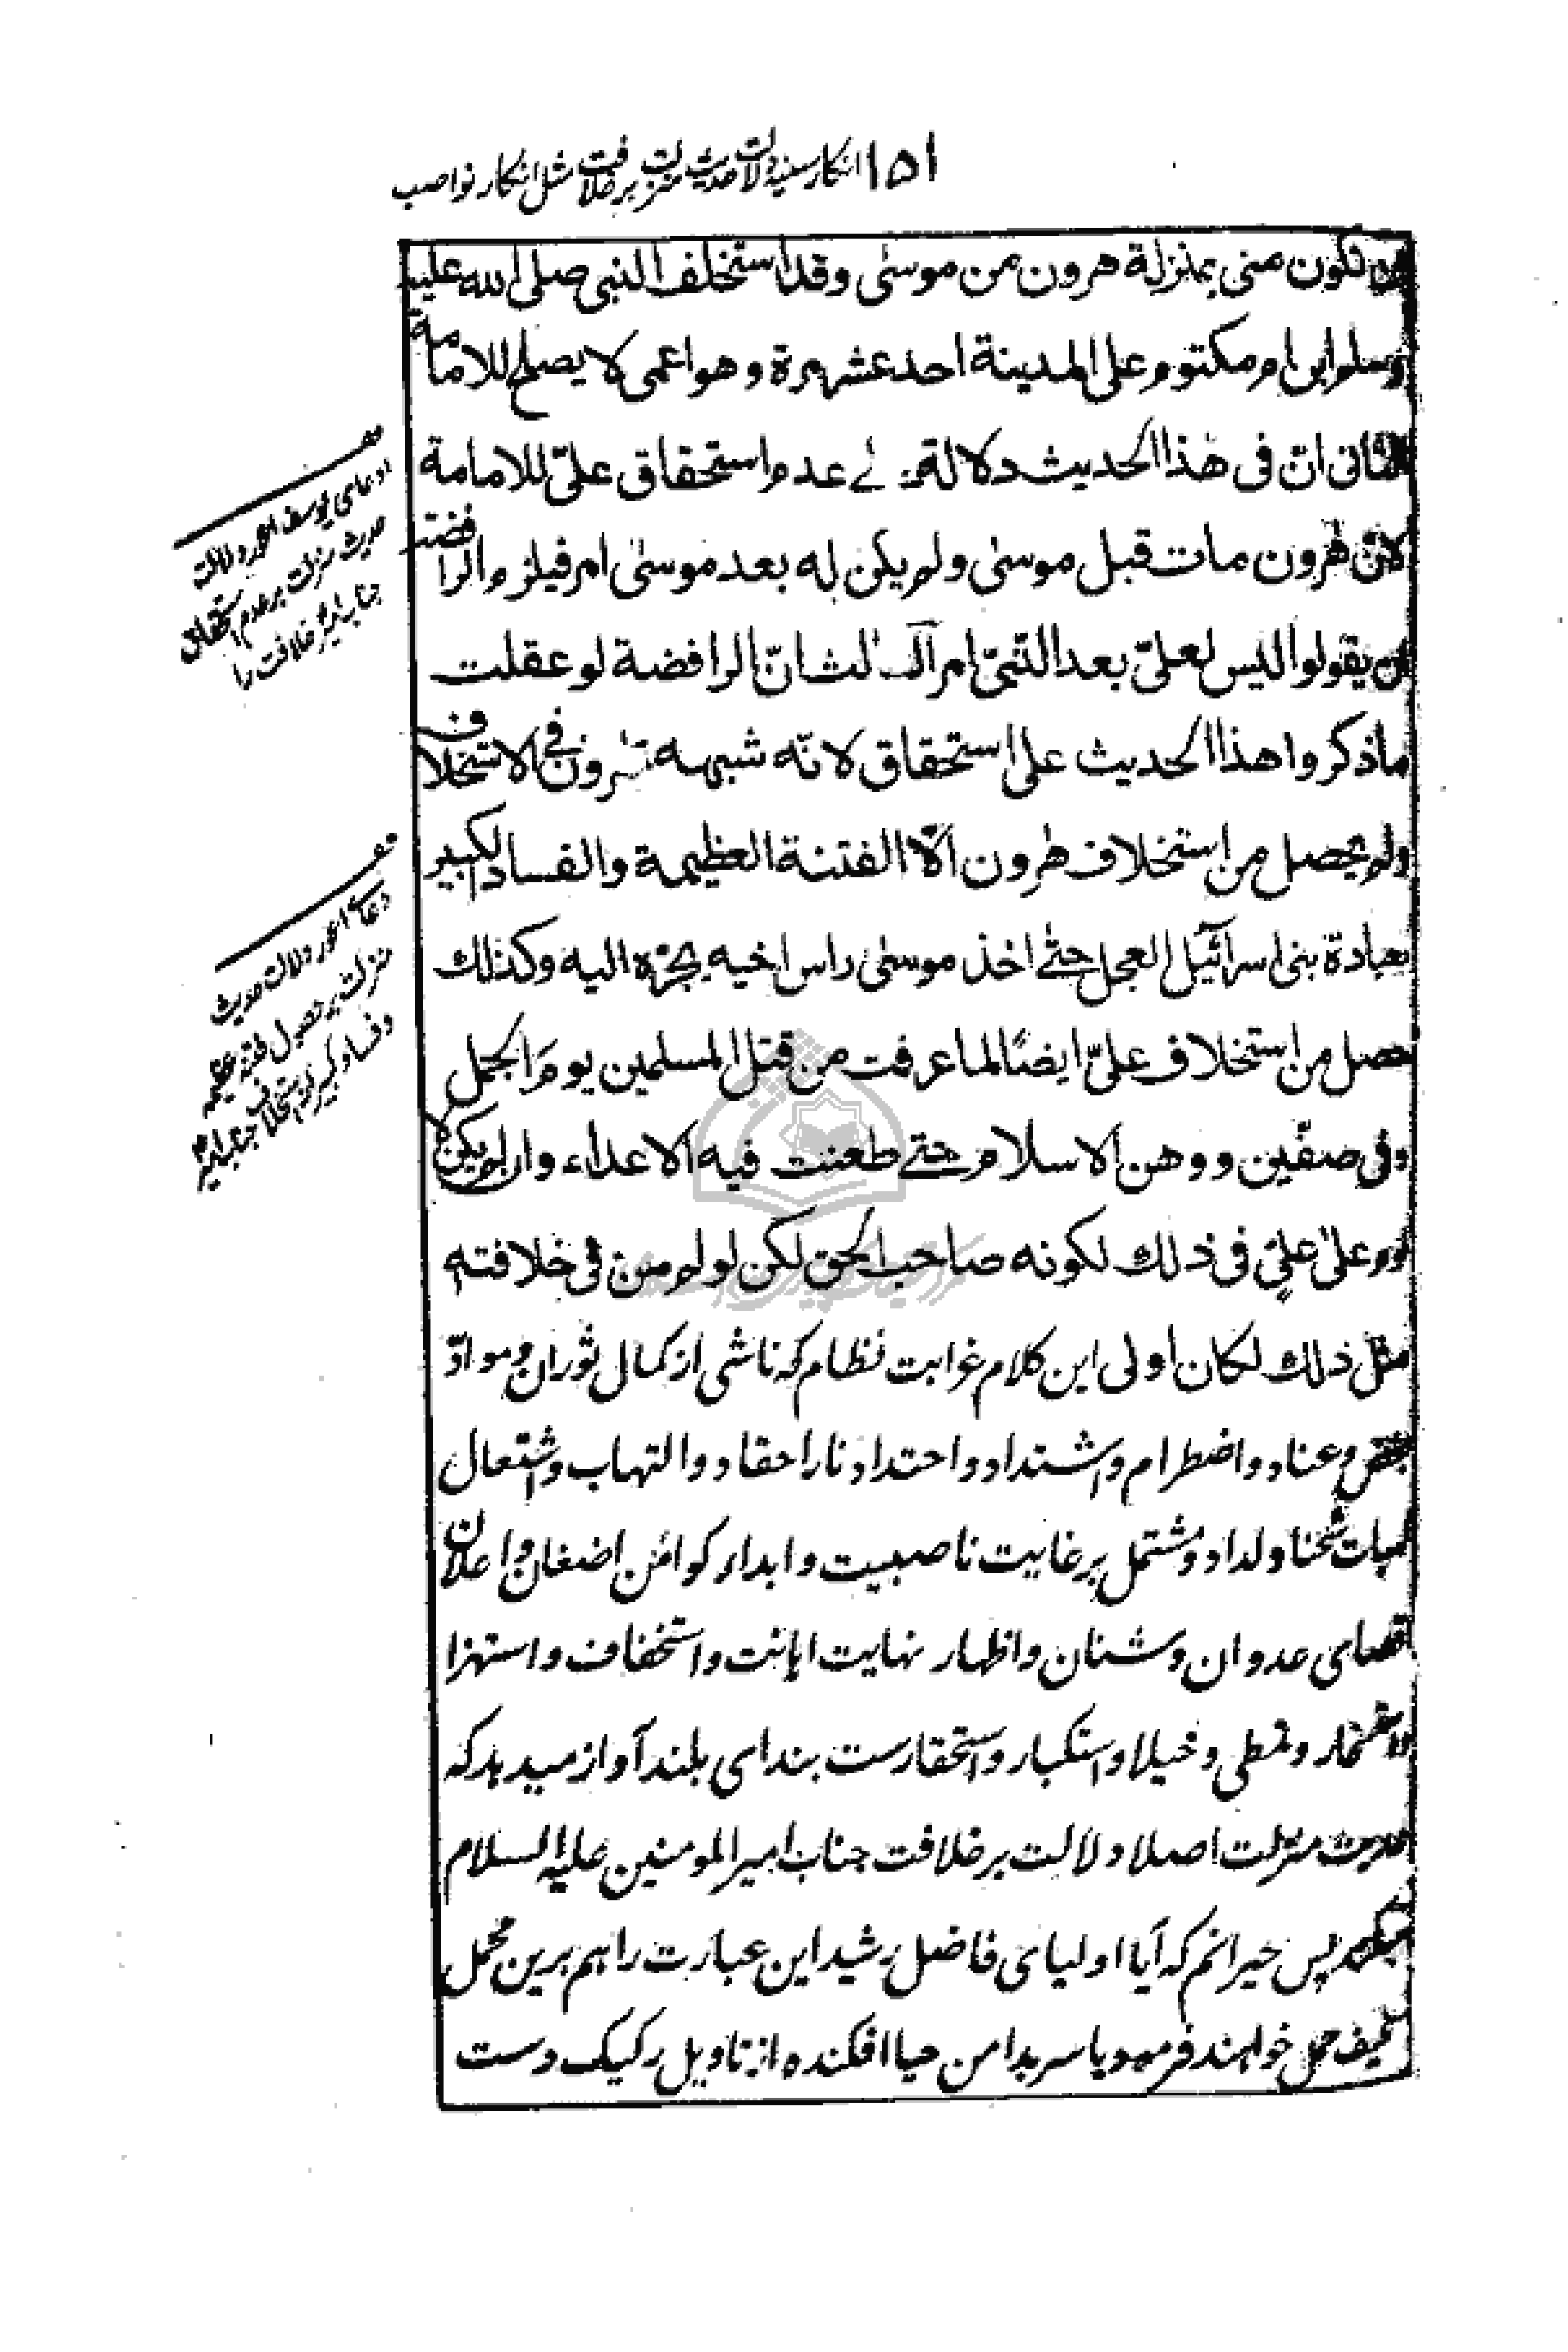 ١٥١ انکار سنیه دلالت حدیث منزلت بر خلافت مثل انکار نواصب
ان تکون منی بمنزلة هرون من موسیٰ وقد استخلف النبی صلی الله علیه
وسلم ابن ام مکتوم علی المدینة احد عشر مرة وهو اعمی لا یصلح للامامة
الثانی انّ فی هذا الحدیث دلالة علے عدم استحقاق علیّ للامامة
لانّ هٰرون مات قبل موسیٰ ولم یکن له بعد موسیٰ امر فیلزم الرافضة
ان یقولوا لیس لعلیّ بعد النّبیّ امر الثالث انّ الرافضة لو عقلت
ماذکروا هذا الحدیث علی استحقاق لانّه شبهه بهٰرون فی الاستخلاف
ولم یحصل من استخلاف هٰرون الّا الفتنة العظیمة والفساد الکبیر
بعبادة بنی اسرآئیل العجل حتّے اخذ موسیٰ راس اخیه یجرّه الیه وکذلک
حصل من استخلاف علیّ ایضًا لما عرفت من قتل المسلمین یومَ الجمل
وفی صفّین ووهن الاسلام حتے طعنت فیه الاعداء وان لم یکن لا
لوم علیٰ علیّ فی ذلک لکونه صاحب الحق لکن لو لم من فی خلافته
مثل ذلک لکان اولی این کلام غرابت نظام که ناشی از کمال ثوران مواد
بغض و عناد و اضطرام و اشتداد و احتداد نار احقاد و التهاب و اشتعال
شحنا و لداد و مشتمل بر غایت ناصبیت و ابداء کوامن اضغان و اعلان
اقصای عدوان و شنان و اظهار نهایت اهانت و استخفاف و استهزا
و تمطی و خیلا و استکبار و استحقارست بندای بلند آواز میدهد که
حدیث منزلت اصلا دلالت بر خلافت جناب امیر المومنین علیه السلام
پس حیرانم که آیا اولیای فاضل رشید این عبارت را هم برین محمل
حمل خواهند فرمود یا سر بدامن حیا افکنده از تاویل رکیک دست
ادعای یوسف اعور دلالت
حدیث منزلت بر عدم استحقاق
جناب امیر خلافت را
ادعاے اعور دلالت حدیث
منزلت بر حصول فتنه عظیمه
و فساد کبیر از استخلاف جناب امیر